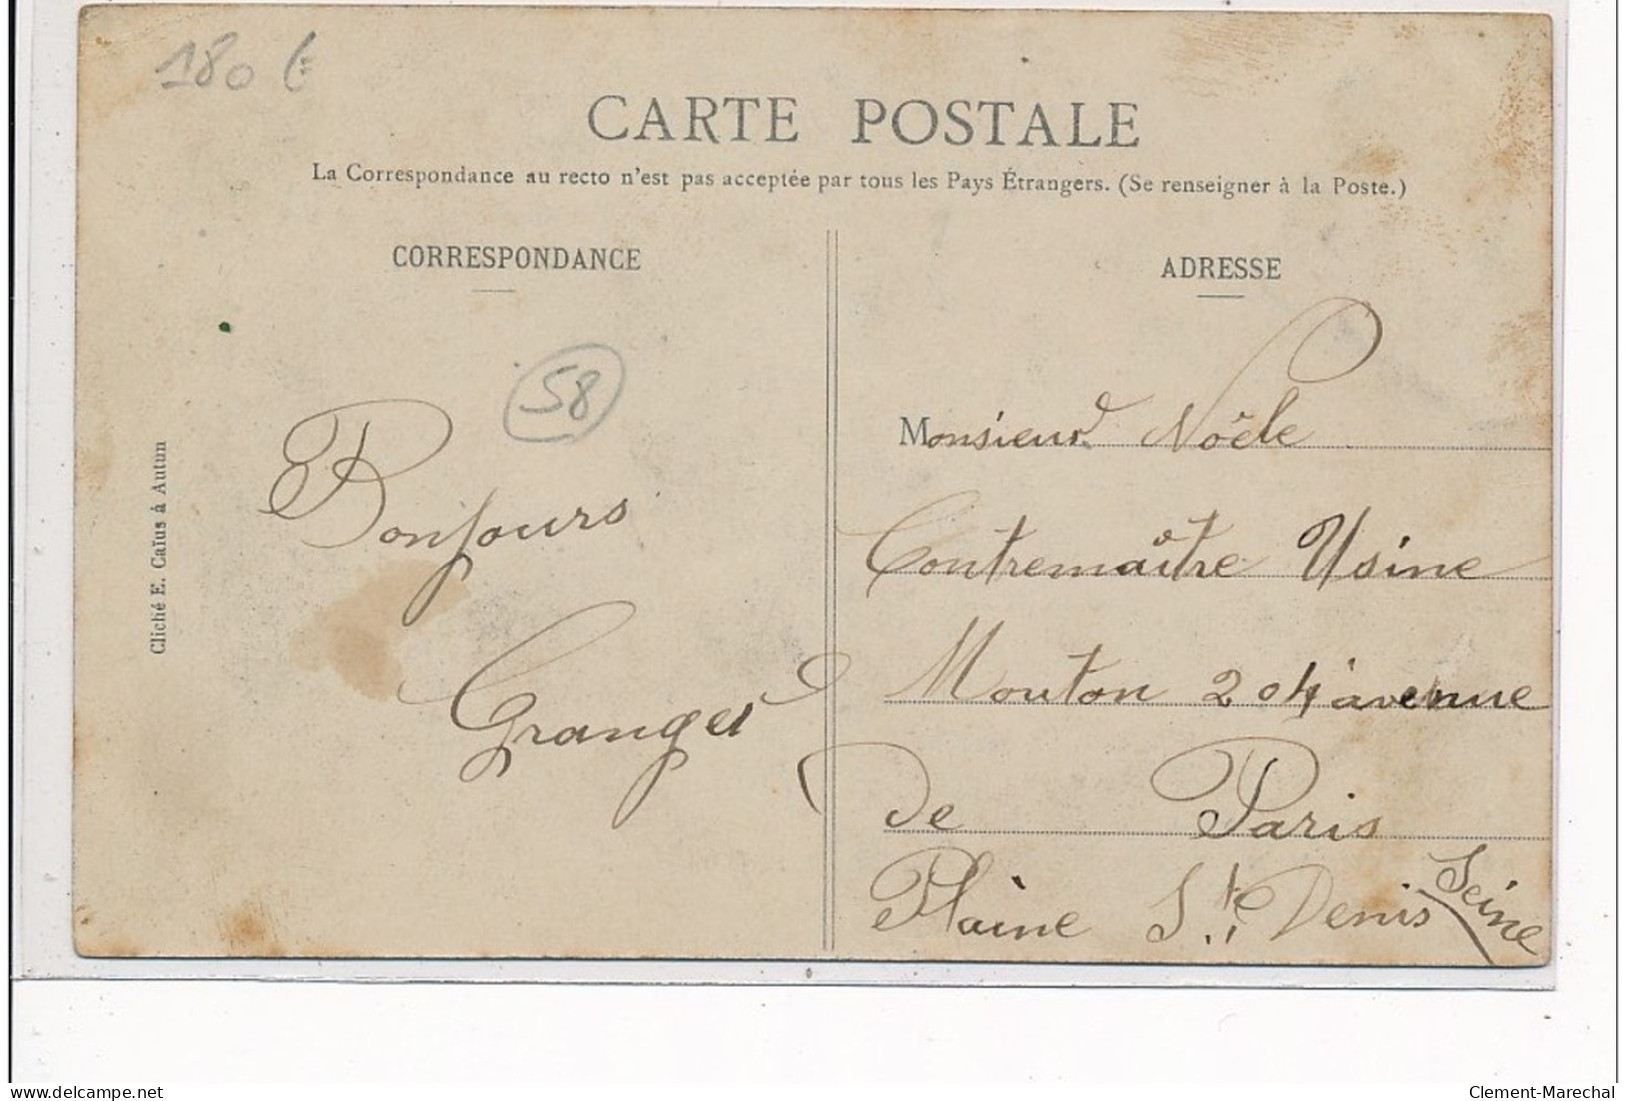 180 €
CARTE POSTALE
La Correspondance au recto n'est pas acceptée par tous les Pays Étrangers. (Se renseigner à la Poste.)
CORRESPONDANCE
58
Bonjours
Granger
Cliché E. Caïus à Autun
ADRESSE
Monsieur Nôële
Contremaître Usine
Mouton 204 avenue
de Paris
Plaine St. Denis Seine
www.delcampe.net
Clement-Marechal